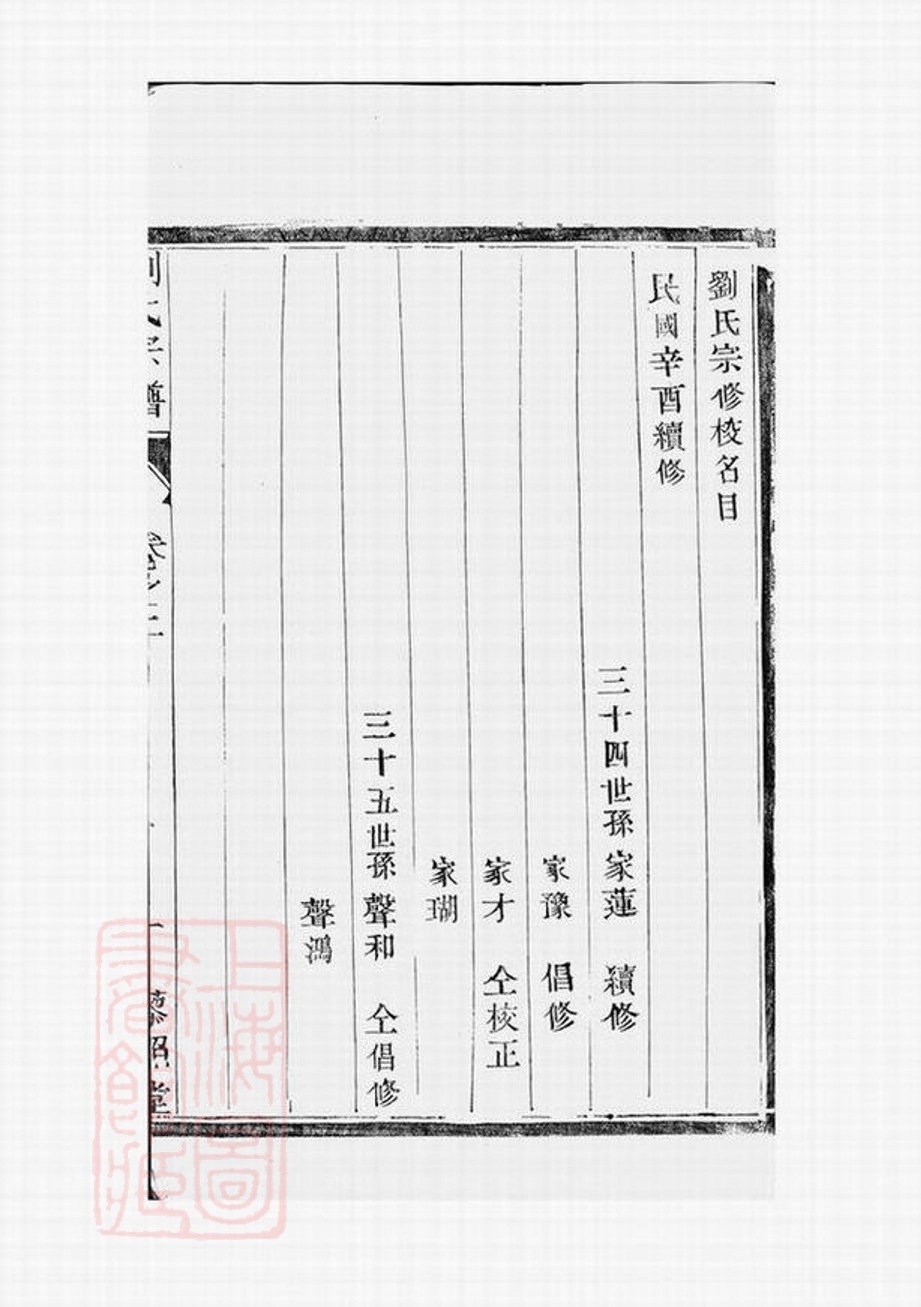 劉氏宗修校名目
民國辛酉續修
三十四世孫家蓮　續修
家豫　倡修
家才　仝校正
家瑚
三十五世孫聲和　仝倡修
聲鴻
劉氏宗譜
上海圖書館藏